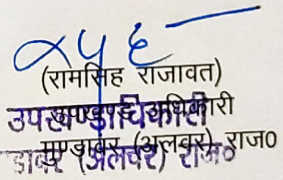 (रामसिंह राजावत)
उपखण्ड अधिकारी
मुण्डावर (अलवर) राज०
उपखण्ड अधिकारी
(अलवर) राज०